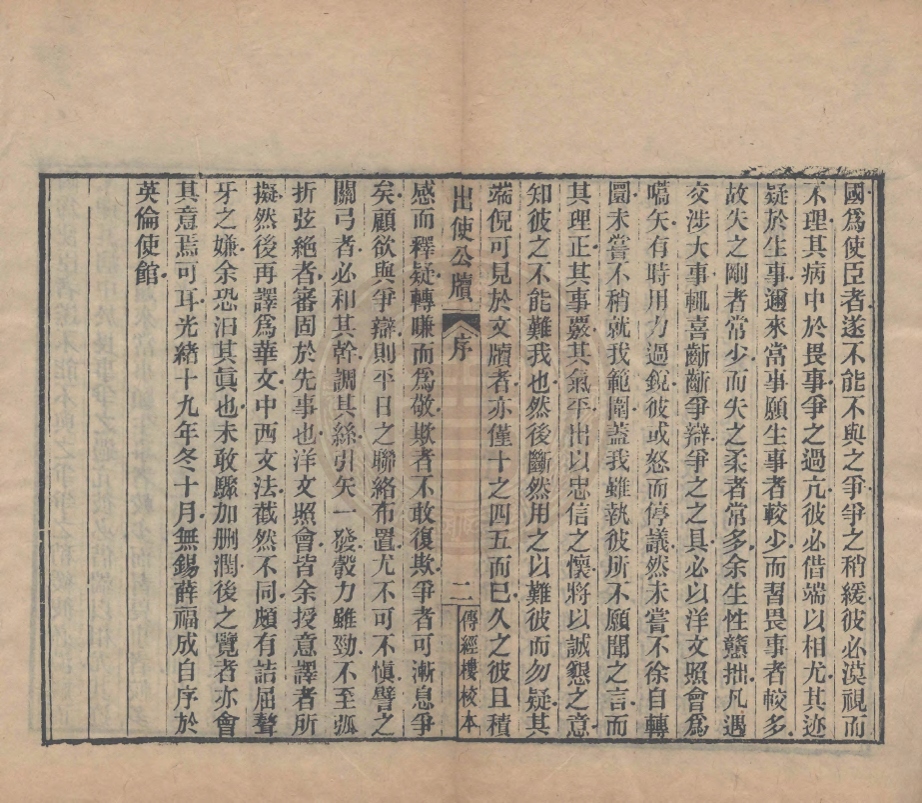 國爲使臣者遂不能不與之爭爭之稍緩彼必漠視而
不理其病中於畏事爭之過亢彼必借端以相尤其迹
疑於生事邇來當事願生事者較少而習畏事者較多
故失之剛者常少而失之柔者常多余生性戇拙凡遇
交涉大事輒喜齗齗爭辯爭之之具必以洋文照會爲
嚆矢有時用力過銳彼或怒而停議然未嘗不徐自轉
圜未嘗不稍就我範圍蓋我雖執彼所不願聞之言而
其理正其事覈其氣平出以忠信之懷將以誠懇之意
知彼之不能難我也然後斷然用之以難彼而勿疑其
端倪可見於文牘者亦僅十之四五而已久之彼且積
出使公牘 序 二 傳經樓校本
感而釋疑轉嗛而爲敬欺者不敢復欺爭者可漸息爭
矣顧欲與爭辯則平日之聯絡布置尤不可不愼譬之
關弓者必和其幹調其絲引矢一發彀力雖勁不至弧
折弦絕者審固於先事也洋文照會皆余授意譯者所
擬然後再譯爲華文中西文法截然不同頗有詰屈聱
牙之嫌余恐汨其眞也未敢驟加刪潤後之覽者亦會
其意焉可耳光緒十九年冬十月無錫薛福成自序於
英倫使館